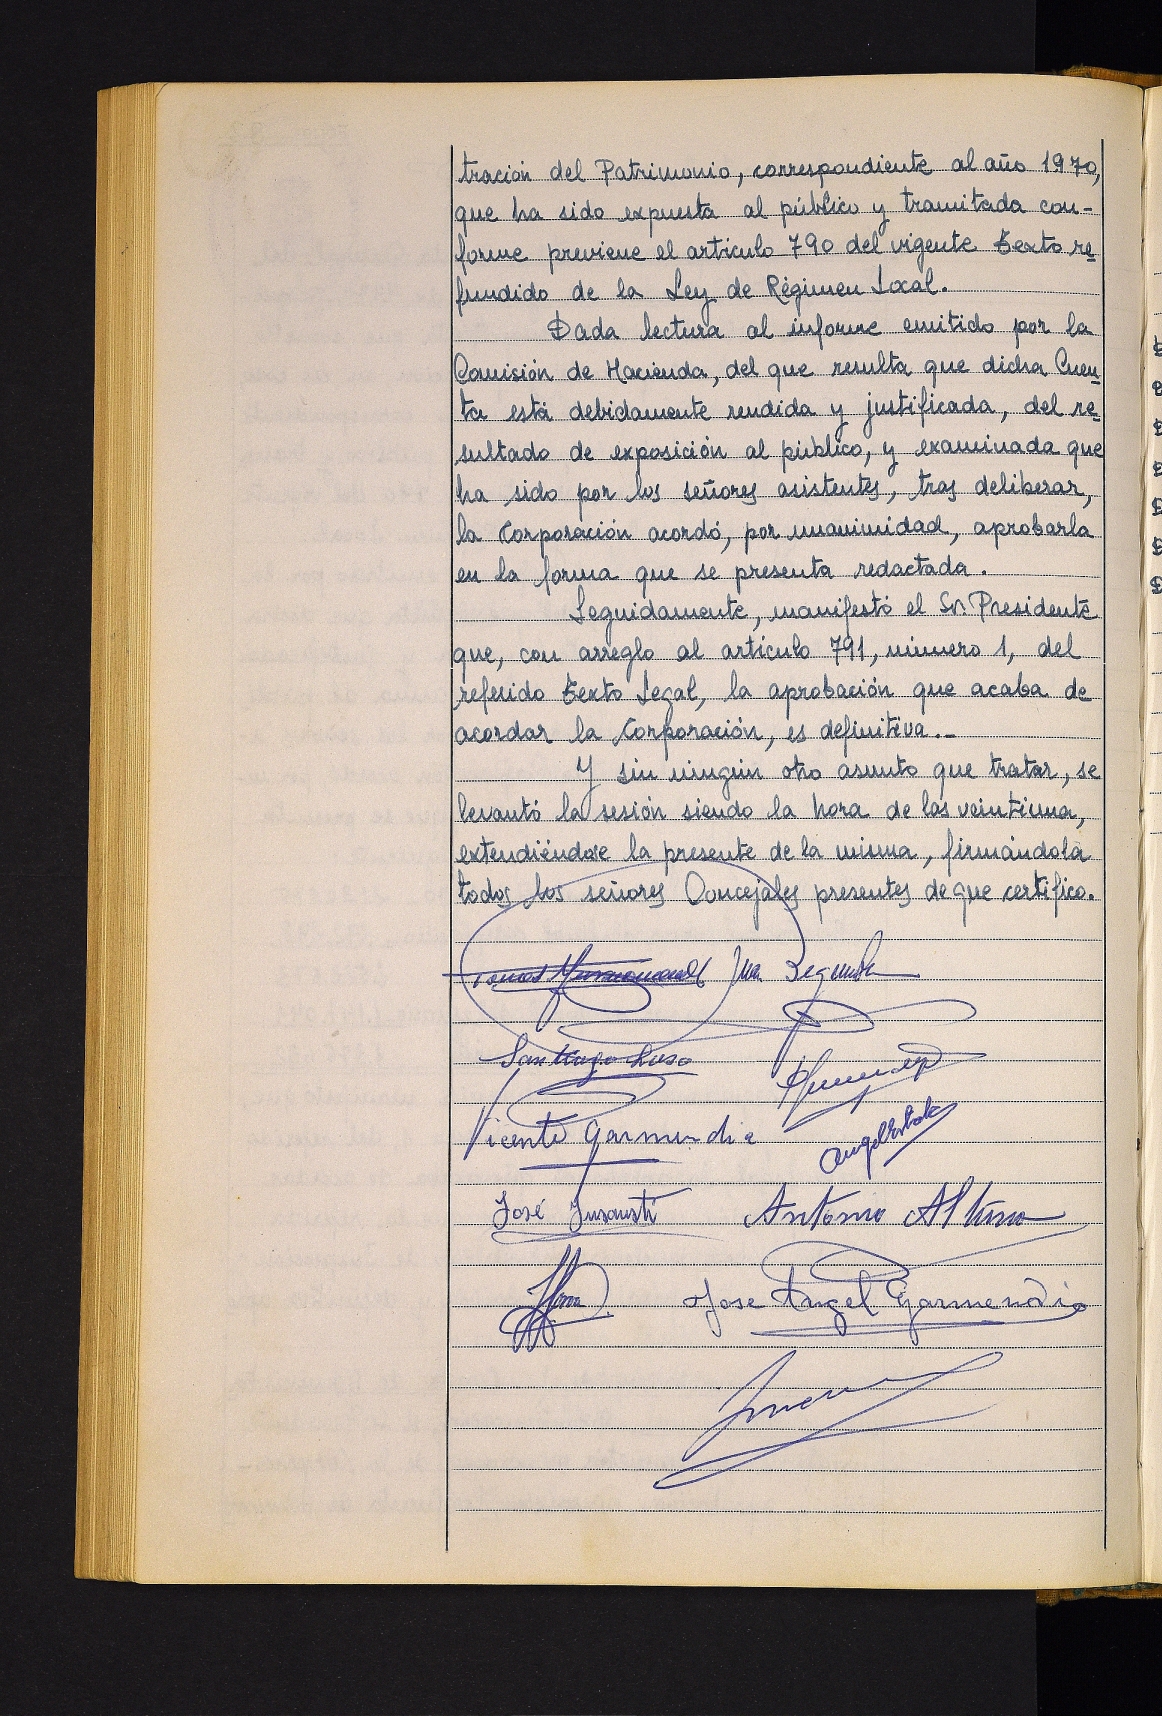 tración del Patrimonio, correspondiente al año 1970,
que ha sido expuesta al público y tramitada con-
forme previene el artículo 790 del vigente Texto re-
fundido de la Ley de Régimen Local.
Dada lectura al informe emitido por la
Comisión de Hacienda, del que resulta que dicha Cuen-
ta está debidamente rendida y justificada, del re-
sultado de exposición al público, y examinada que
ha sido por los señores asistentes, tras deliberar,
la Corporación acordó, por unanimidad, aprobarla
en la forma que se presenta redactada.
Seguidamente, manifestó el Sr. Presidente
que, con arreglo al artículo 791, número 1, del
referido Texto Legal, la aprobación que acaba de
acordar la Corporación, es definitiva.-
Y sin ningún otro asunto que tratar, se
levantó la sesión siendo la hora de las veintiuna,
extendiéndose la presente de la misma, firmándola
todos los señores Concejales presentes de que certifico.
Juan
Santiago
Vicente Garmendia
José Antonio Altuna
Jose Angel Garmendia